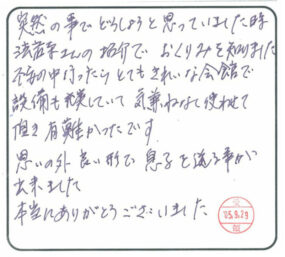 突然の事でどうしようと思っていました時
法華さんの紹介で おくりみを知りました
中に入ったらとてもきれいな会館で
設備も充実していて 気兼ねなく使わせて
頂き有難かったです
思いの外 良い形で 息子を送る事が
出来ました
本当にありがとうございました
05.9.29